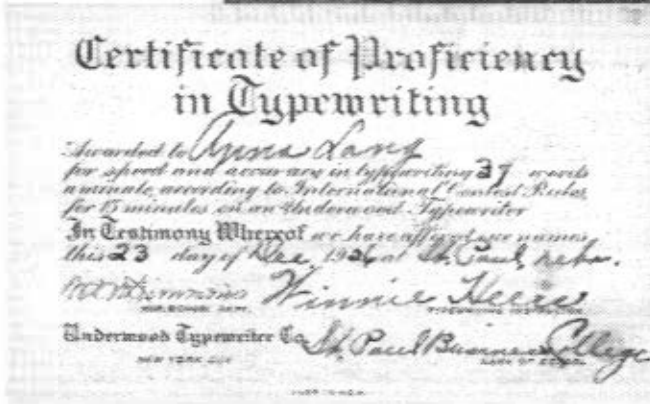 Certificate of Proficiency
in Typewriting
Awarded to Anna Lang
for speed and accuracy in typewriting 37 words
a minute, according to International Contest Rules
for 15 minutes on an Underwood Typewriter
In Testimony Whereof we have affixed our names
this 23 day of Dec 1926 at St. Paul, Nebr.
Winnie
Underwood Typewriter Co. St. Paul Business College
NEW YORK CITY NAME OF SCHOOL